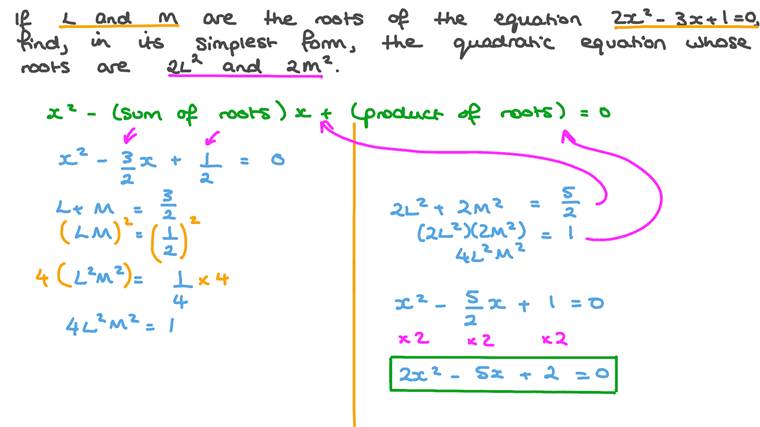 If L and M are the roots of the equation 2x² - 3x + 1 = 0,
find, in its simplest form, the quadratic equation whose
roots are 2L² and 2M².
x² - (sum of roots) x + (product of roots) = 0
x² - 3/2 x + 1/2 = 0
L + M = 3/2
(LM)² = (1/2)²
4(L²M²) = 1/4 × 4
4L²M² = 1
2L² + 2M² = 5/2
(2L²)(2M²) = 1
4L²M²
x² - 5/2 x + 1 = 0
×2 ×2 ×2
2x² - 5x + 2 = 0